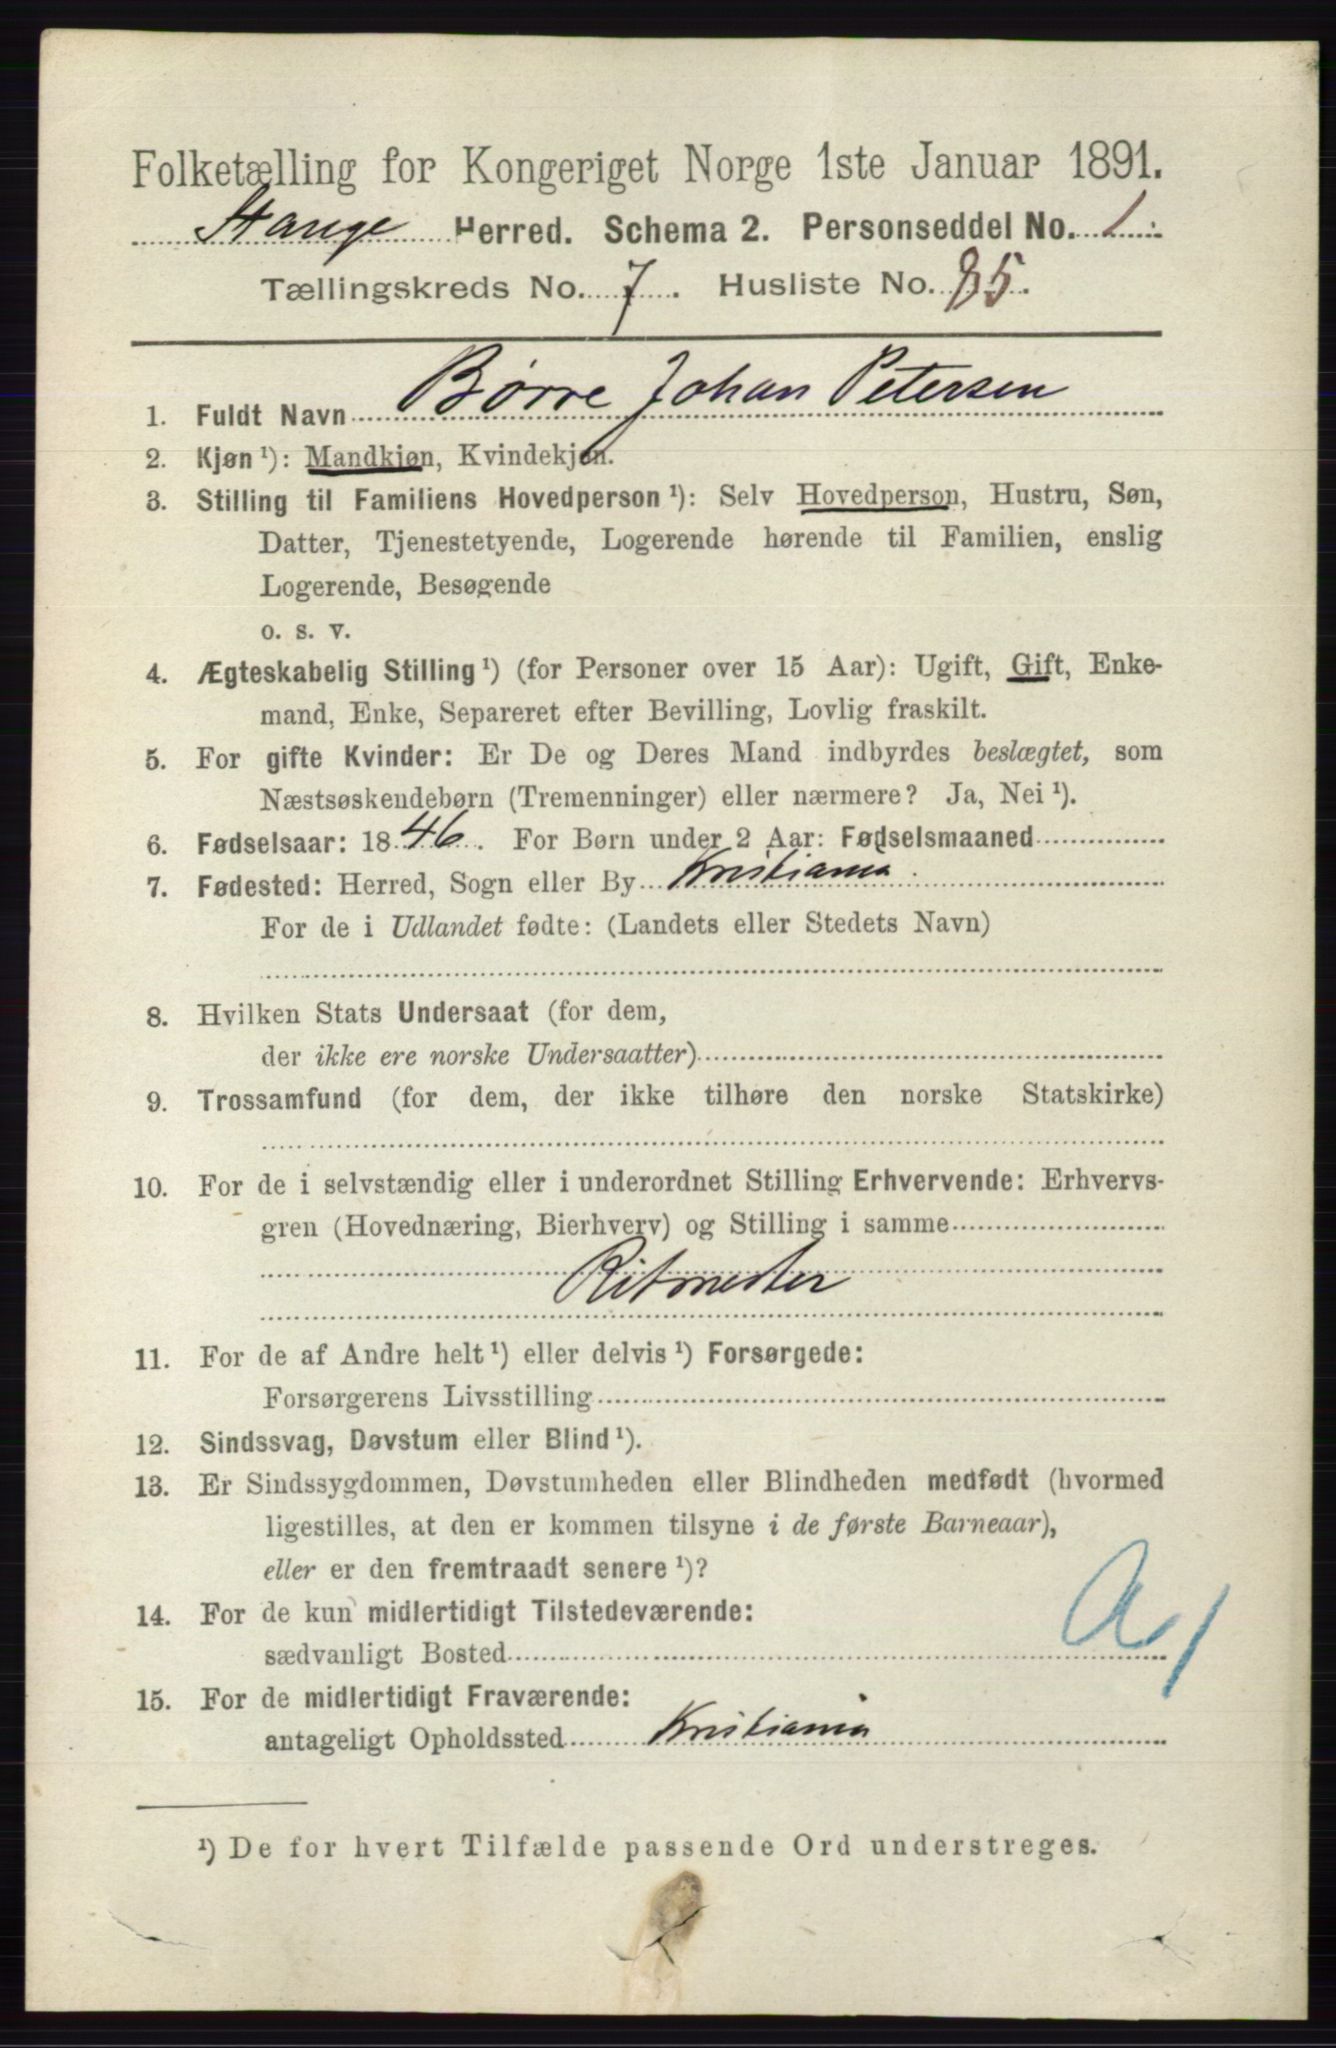 Folketælling for Kongeriget Norge 1ste Januar 1891.
Stange Herred. Schema 2. Personseddel No. 1.
Tællingskreds No. 7. Husliste No. 85.
1. Fuldt Navn Børre Johan Petersen
2. Kjøn ¹): Mandkjøn, Kvindekjøn.
3. Stilling til Familiens Hovedperson ¹): Selv Hovedperson, Hustru, Søn,
Datter, Tjenestetyende, Logerende hørende til Familien, enslig
Logerende, Besøgende
o. s. v.
4. Ægteskabelig Stilling ¹) (for Personer over 15 Aar): Ugift, Gift, Enke-
mand, Enke, Separeret efter Bevilling, Lovlig fraskilt.
5. For gifte Kvinder: Er De og Deres Mand indbyrdes beslægtet, som
Næstsøskendebørn (Tremenninger) eller nærmere? Ja, Nei ¹).
6. Fødselsaar: 1846. For Børn under 2 Aar: Fødselsmaaned
7. Fødested: Herred, Sogn eller By Kristiania
For de i Udlandet fødte: (Landets eller Stedets Navn)
8. Hvilken Stats Undersaat (for dem,
der ikke ere norske Undersaatter)
9. Trossamfund (for dem, der ikke tilhøre den norske Statskirke)
10. For de i selvstændig eller i underordnet Stilling Erhvervende: Erhvervs-
gren (Hovednæring, Bierhverv) og Stilling i samme
Ritmester
11. For de af Andre helt ¹) eller delvis ¹) Forsørgede:
Forsørgerens Livsstilling
12. Sindssvag, Døvstum eller Blind ¹).
13. Er Sindssygdommen, Døvstumheden eller Blindheden medfødt (hvormed
ligestilles, at den er kommen tilsyne i de første Barneaar),
eller er den fremtraadt senere ¹)?
14. For de kun midlertidigt Tilstedeværende:
sædvanligt Bosted
15. For de midlertidigt Fraværende:
antageligt Opholdssted Kristiania
¹) De for hvert Tilfælde passende Ord understreges.